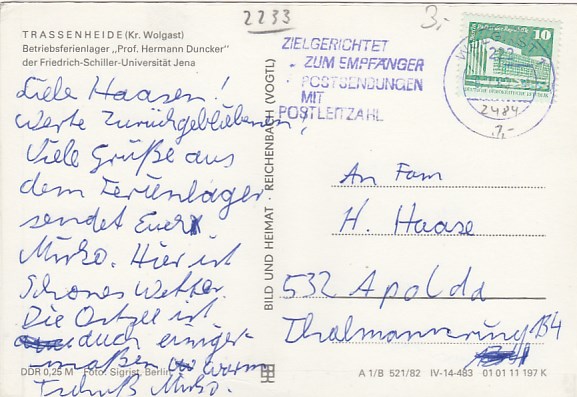 2233
3,-
TRASSENHEIDE (Kr. Wolgast)
Betriebsferienlager „Prof. Hermann Duncker"
der Friedrich-Schiller-Universität Jena
ZIELGERICHTET
ZUM EMPFÄNGER
POSTSENDUNGEN
MIT
POSTLEITZAHL
10
2484
1,-
Liebe Haasen!
Werte Zurückgebliebenen,
Viele Grüße aus
dem Ferienlager
sendet Euch
Mirko. Hier ist
Schönes Wetter.
Die Ostsee ist
auch einiger-
maßen warm
Tschuß Mirko.
BILD UND HEIMAT · REICHENBACH (VOGTL)
An Fam
H. Haase
532 Apolda
Thalmannring 134
DDR 0,25 M Foto: Sigrist, Berlin
A 1/B 521/82 IV-14-483 01 01 11 197 K